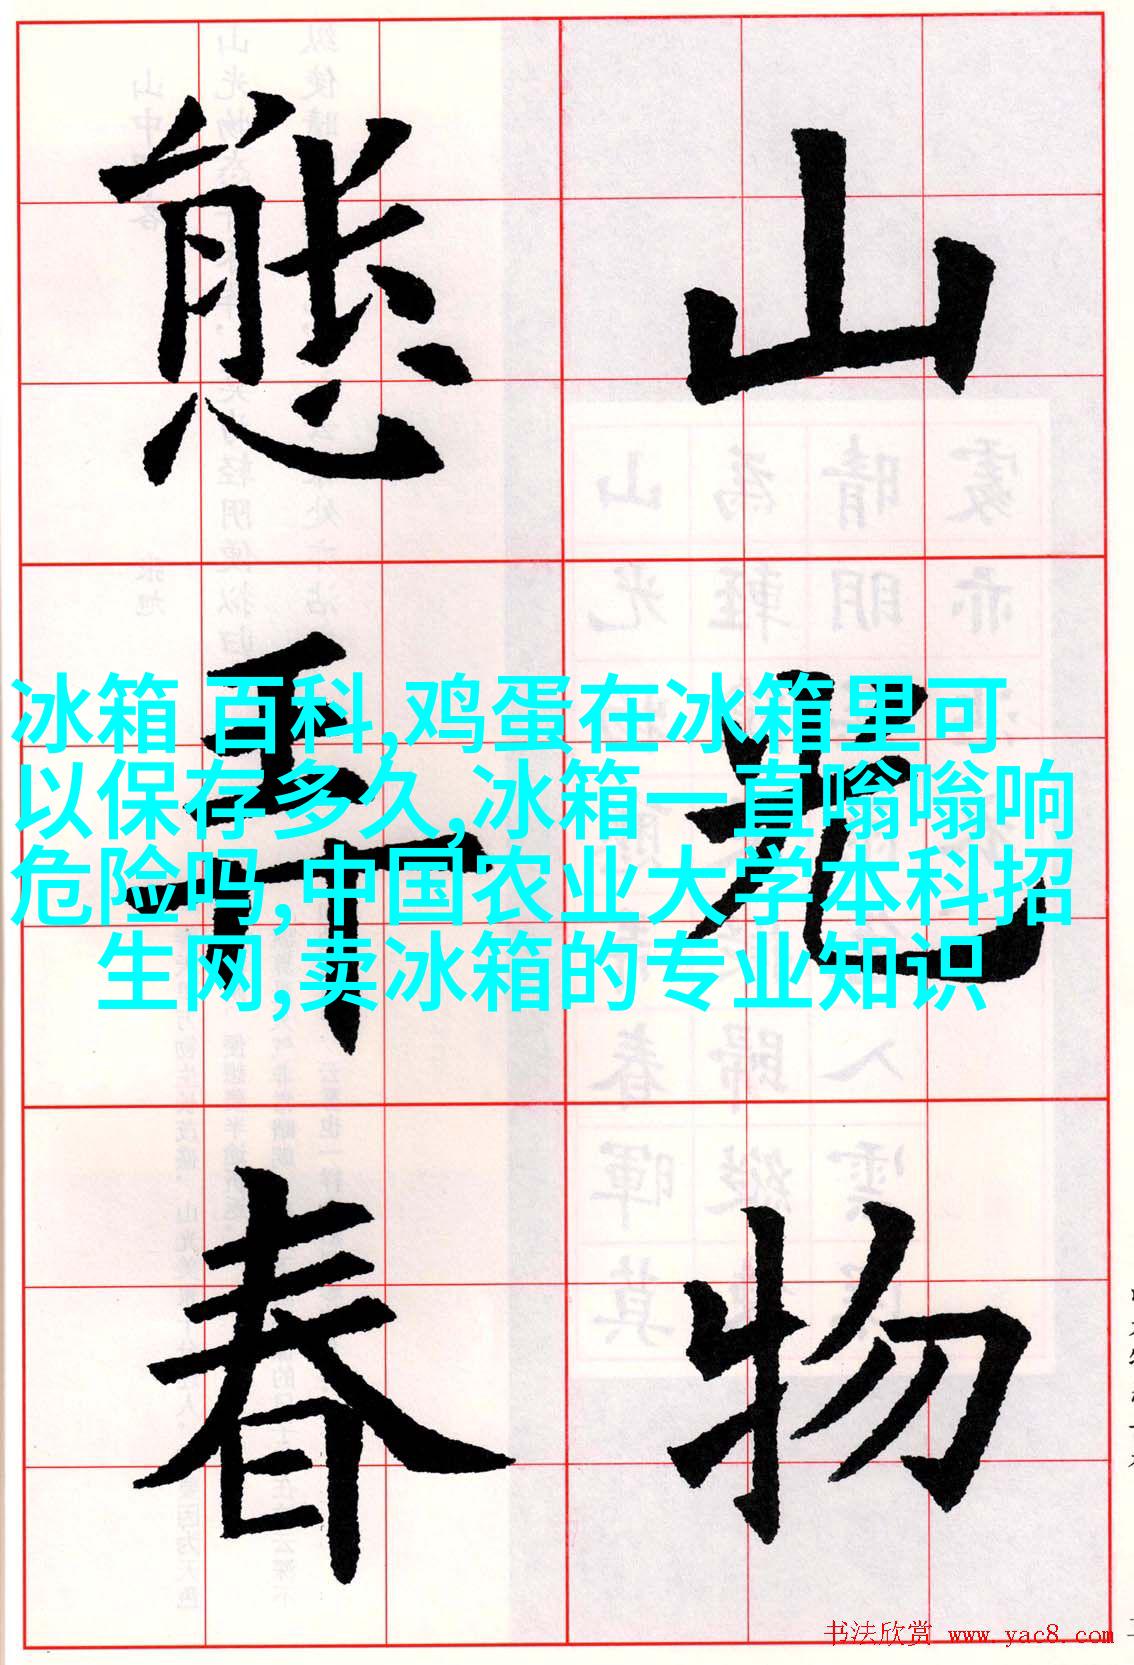 山光物
態弄春
冰箱 百科,鸡蛋在冰箱里可
以保存多久,冰箱一直嗡嗡响
危险吗,中国农业大学本科招
生网,卖冰箱的专业知识
书法欣赏 www.yac8.com